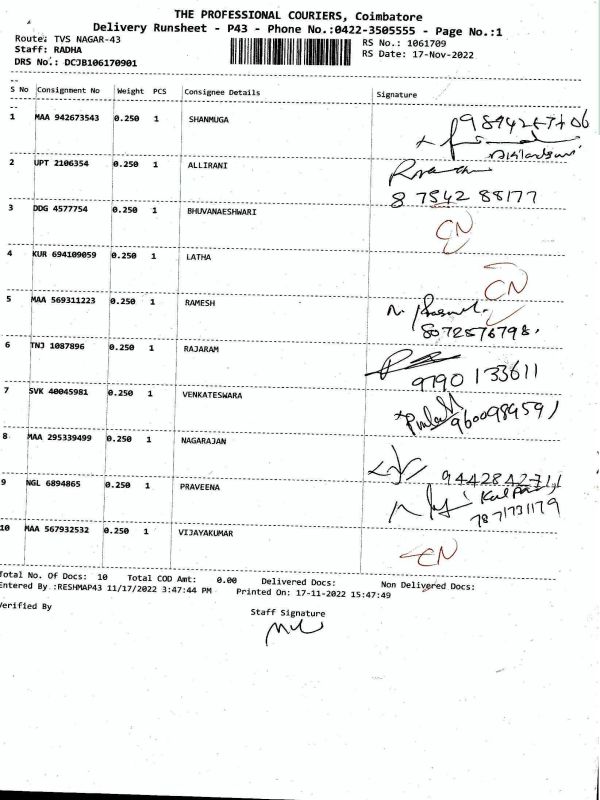 THE PROFESSIONAL COURIERS, Coimbatore
Delivery Runsheet - P43 - Phone No.:0422-3505555 - Page No.:1
Route: TVS NAGAR-43
RS No.: 1061709
Staff: RADHA
RS Date: 17-Nov-2022
DRS No.: DCJB106170901
S No Consignment No Weight PCS Consignee Details Signature
1 MAA 942673543 0.250 1 SHANMUGA
2 UPT 2106354 0.250 1 ALLIRANI
8 7542 88177
3 DDG 4577754 0.250 1 BHUVANAESHWARI CN
4 KUR 694109059 0.250 1 LATHA CN
5 MAA 569311223 0.250 1 RAMESH
8072576798.
6 TNJ 1087896 0.250 1 RAJARAM
9790 133611
7 SVK 40045981 0.250 1 VENKATESWARA
9600989591
8 MAA 295339499 0.250 1 NAGARAJAN
9442842711
9 NGL 6894865 0.250 1 PRAVEENA
7871731179
10 MAA 567932532 0.250 1 VIJAYAKUMAR CN
Total No. Of Docs: 10 Total COD Amt: 0.00 Delivered Docs: Non Delivered Docs:
Entered By :RESHMAP43 11/17/2022 3:47:44 PM Printed On: 17-11-2022 15:47:49
Verified By
Staff Signature